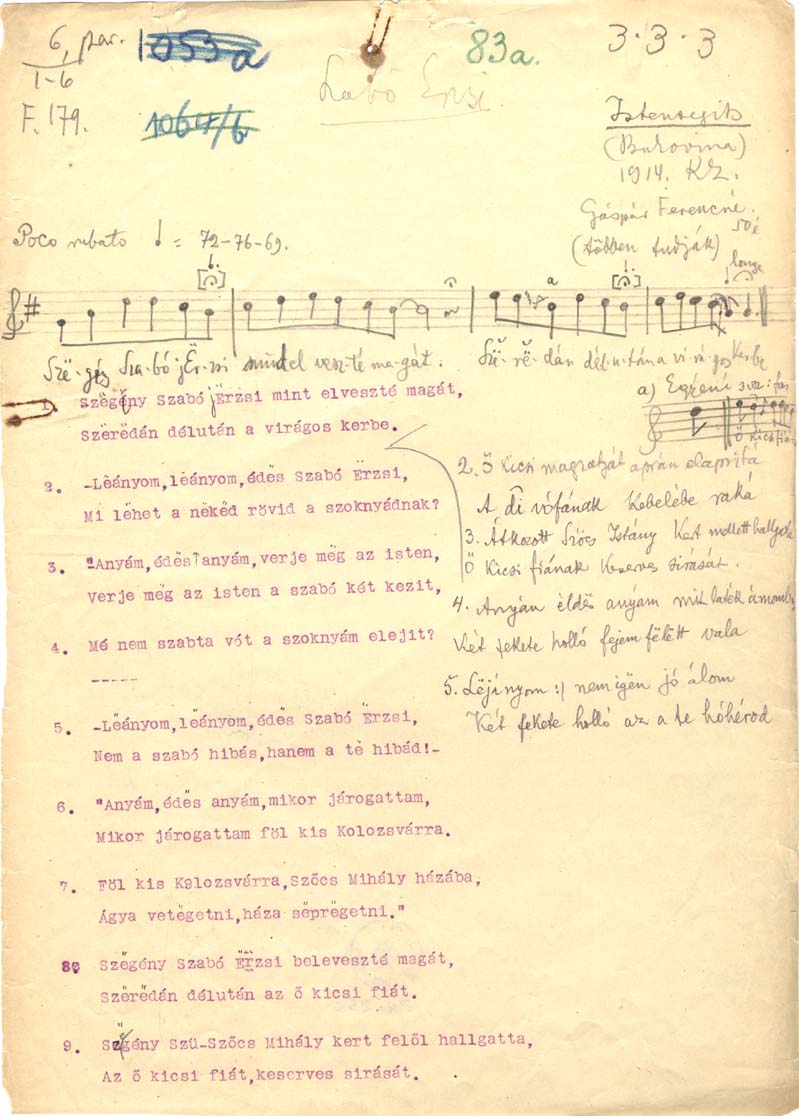 6, par.
1-6
F. 179.
1053a
1064/b
83a.
3·3·3
Szabó Erzsi.
Istensegits
(Bukovina)
1914. KZ.
Gáspár Ferencné.
50 é
(többen tudják)
Poco rubato ♩ = 72-76-69.
longa
a
Szë-gén Sza-bó jËr-zsi mindel vesz-té ma-gát. Szë-rë-dán dél-u-tán a vi-rá-gos kerbe
1. Szëgény Szabó jËrzsi mint elveszté magát,
Szërëdán délután a virágos kerbe.
2. -Lëányom,lëányom,édës Szabó Ërzsi,
Mi lëhet a nékëd rövid a szoknyádnak?
3. "Anyám,édës anyám,verje mëg az isten,
verje mëg az isten a szabó két kezit,
4. Mé nem szabta vót a szoknyám elejit?
-----
5. -Lëányom,lëányom,édës Szabó Ërzsi,
Nem a szabó hibás,hanem a të hibád!-
6. "Anyám,édës anyám,mikor járogattam,
Mikor járogattam föl kis Kolozsvárra.
7. Föl kis Kolozsvárra,Szőcs Mihály házába,
Ágya vetëgetni,háza sëprëgetni."
8. Szëgény Szabó Ërzsi beleveszté magát,
Szërëdán délután az ő kicsi fiát.
9. Szëgény Szü-Szőcs Mihály kert felől hallgatta,
Az ő kicsi fiát,keserves sirását.
a)
Ő kicsi fiá
2. Ő kicsi magzatját aprán elaprítá
A di vófának kebelébe raká
3. Átkozott Szőcs Istány kert mellett hallgata
Ő kicsi fiának keserves sirását.
4. Anyán éldës anyám mit laték álmomba
Két fekete holló fejem fëlëtt vala
5. Lëjányom :/ nem igën jó álom
Két fekete holló az a te hóhérod